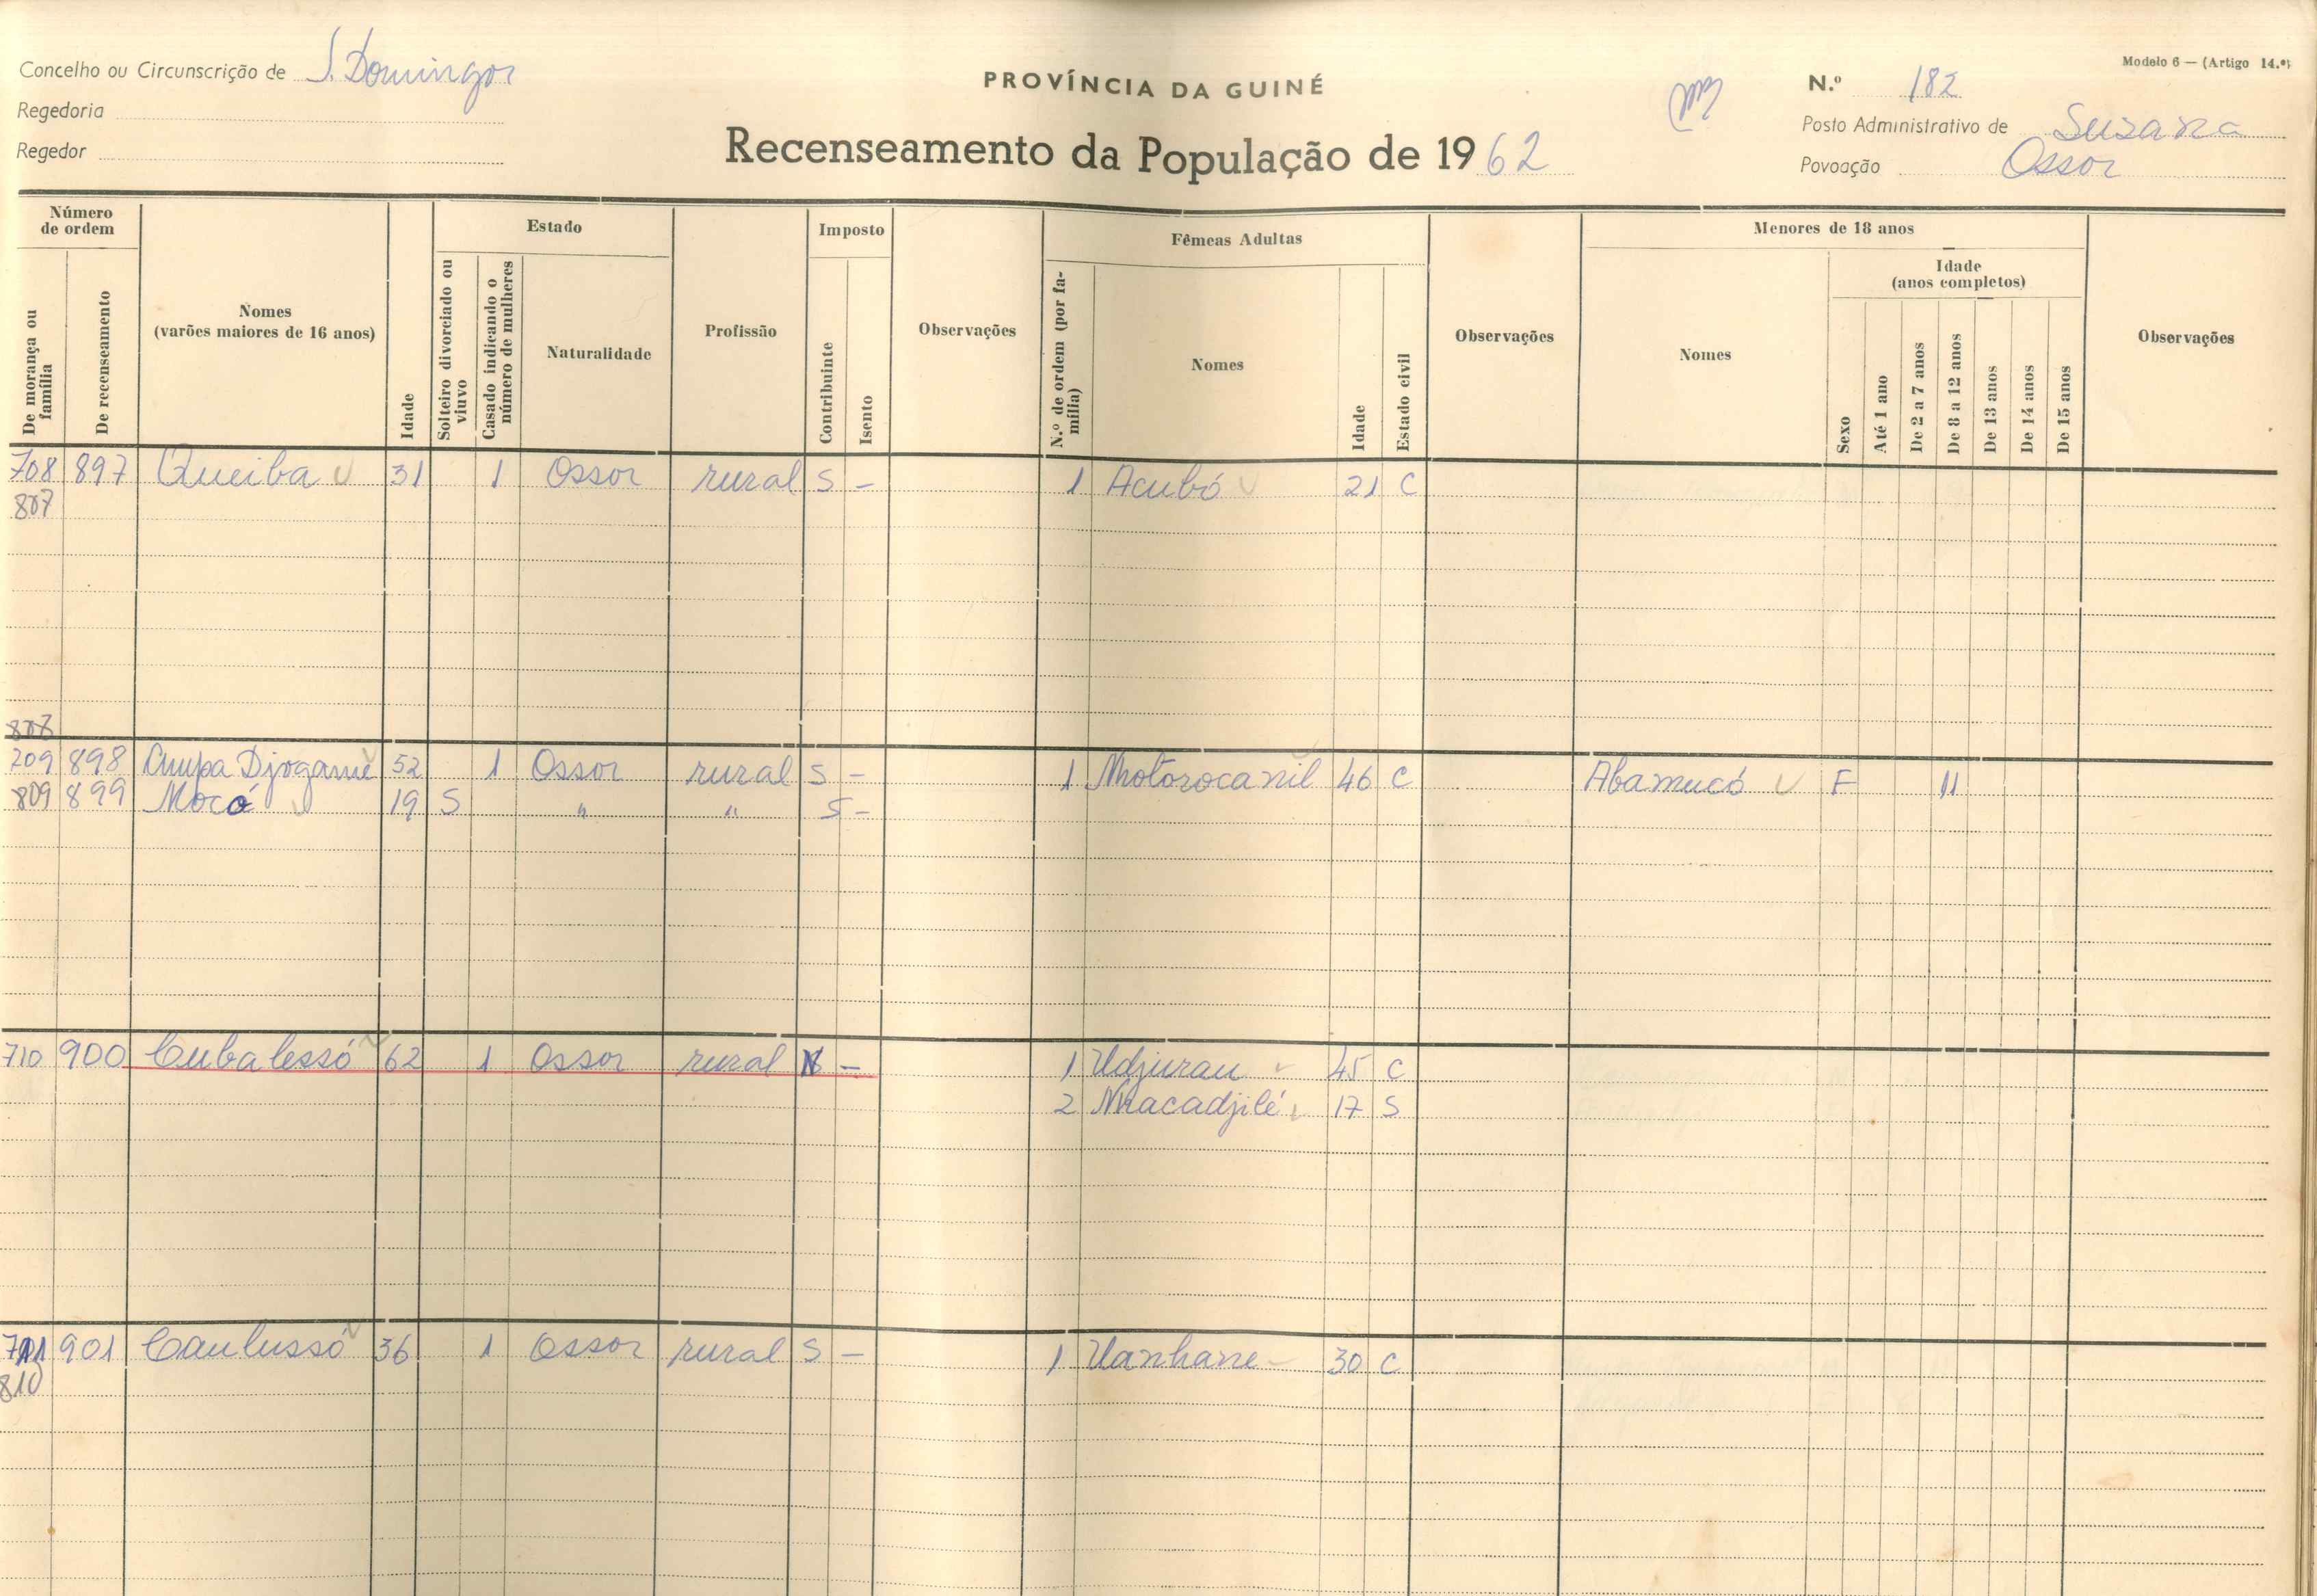 Modelo 6 — (Artigo 14.º)
Concelho ou Circunscrição de S. Domingos
Regedoria
Regedor
PROVÍNCIA DA GUINÉ
Recenseamento da População de 1962
N.º 182
Posto Administrativo de Susana
Povoação Ossor
Número de ordem
De morança ou família
De recenseamento
Nomes
(varões maiores de 16 anos)
Idade
Estado
Solteiro divorciado ou viuvo
Casado indicando o número de mulheres
Naturalidade
Profissão
Imposto
Contribuinte
Isento
Observações
Fêmeas Adultas
N.º de ordem (por família)
Nomes
Idade
Estado civil
Observações
Menores de 18 anos
Nomes
Sexo
Idade
(anos completos)
Até 1 ano
De 2 a 7 anos
De 8 a 12 anos
De 13 anos
De 14 anos
De 15 anos
Observações
708 897 Queiba 31 1 Ossor rural S – 1 Acubó 21 C
807
808
709 898 Ampa Djogamé 52 1 Ossor rural S – 1 Motorocanil 46 C Abamucó F 11
809 899 Mocó 19 S " " S –
710 900 Cubalessó 62 1 Ossor rural – 1 Udjurau 45 C
2 Nhacadjilé 17 S
711 901 Caulussó 36 1 Ossor rural S – 1 Uanhane 30 C
810